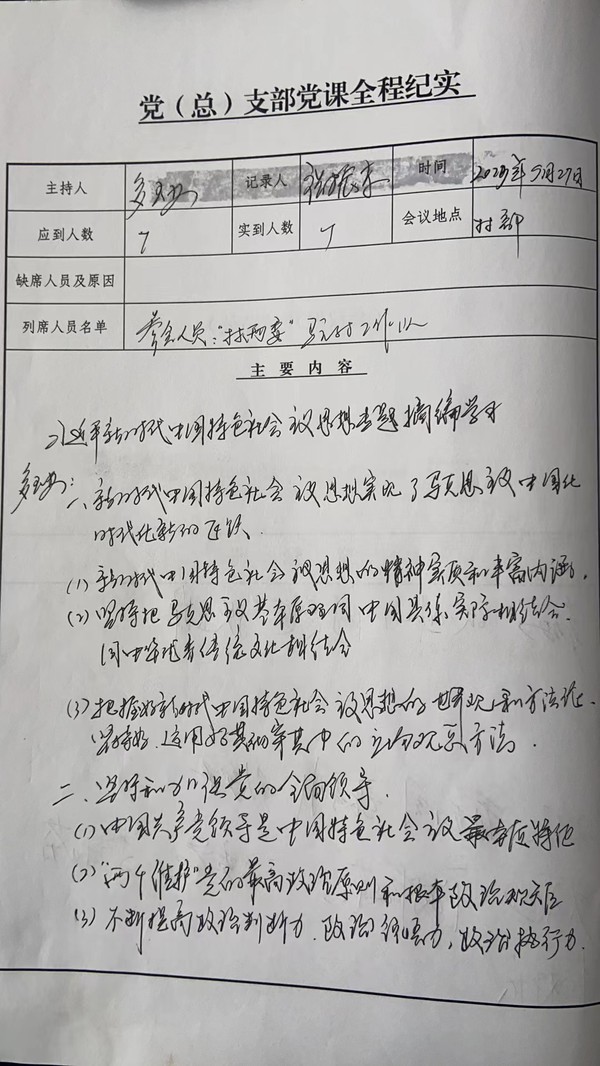 党（总）支部党课全程纪实
主持人 记录人 时间 2023年9月27日
应到人数 7 实到人数 7 会议地点 村部
缺席人员及原因
列席人员名单 参会人员：“村两委” 驻村工作队
主要内容
习近平新时代中国特色社会主义思想专题摘编学习
一、新时代中国特色社会主义思想实现了马克思主义中国化
时代化新的飞跃.
(1) 新时代中国特色社会主义思想的精神实质和丰富内涵.
(2) 坚持把马克思主义基本原理同中国具体实际相结合.
同中华优秀传统文化相结合
(3) 把握好新时代中国特色社会主义思想的世界观和方法论.
坚持好.运用好贯穿其中的立场观点方法.
二、坚持和加强党的全面领导.
(1) 中国共产党领导是中国特色社会主义最本质特征
(2) “两个维护”党的最高政治原则和根本政治规矩
(3) 不断提高政治判断力.政治领悟力，政治执行力.